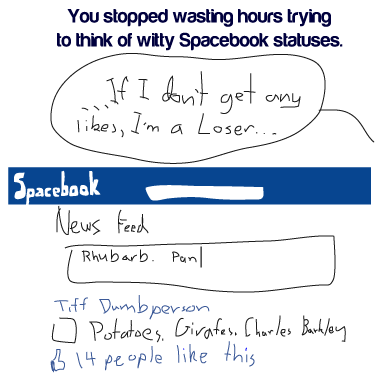 You stopped wasting hours trying
to think of witty Spacebook statuses.
...If I don't get any
likes, I'm a Loser...
Spacebook
News Feed
Rhubarb. Pan
Tiff Dumbperson
Potatoes. Girafes. Charles Barkley
14 people like this